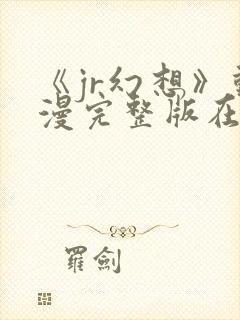 《jr幻想》
漫完整版在
羅劍